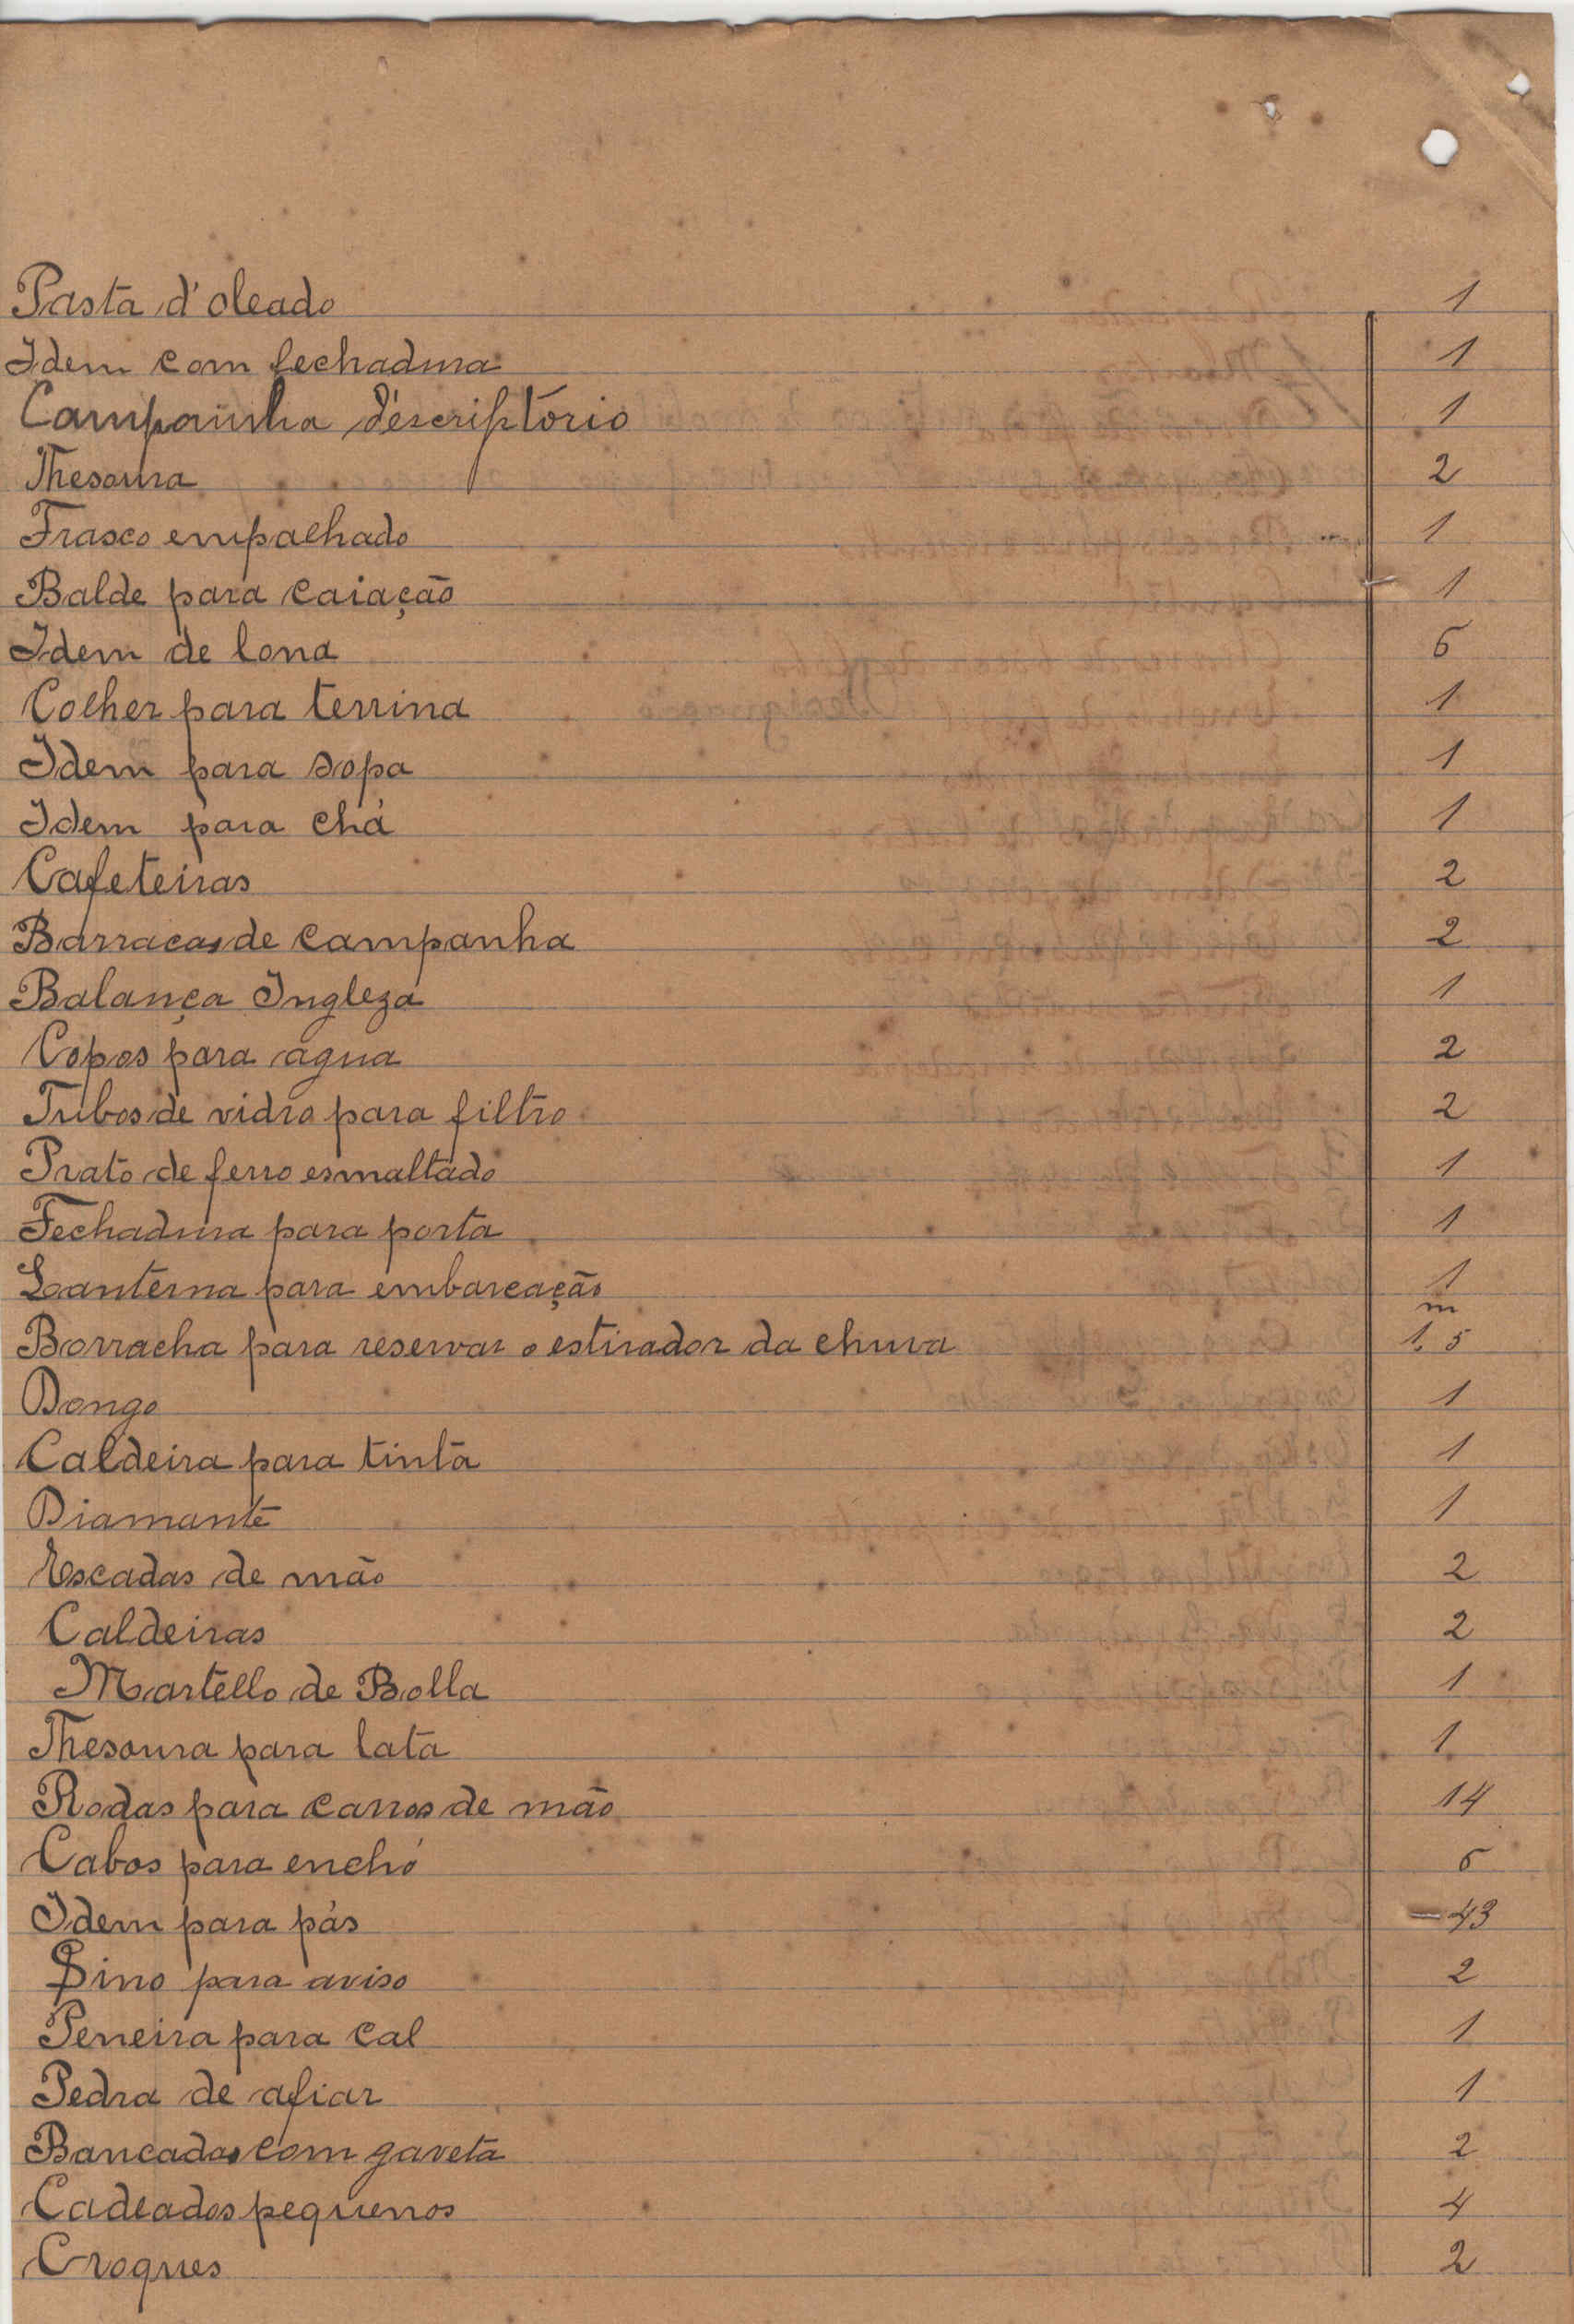 Pasta d'oleado 1
Idem com fechadura 1
Campainha d'escriptório 1
Thesoura 2
Frasco empalhado 1
Balde para caiação 1
Idem de lona 6
Colher para terrina 1
Idem para sopa 1
Idem para chá 1
Cafeteiras 2
Barracas de campanha 2
Balança Ingleza 1
Copos para agua 2
Tubos de vidro para filtro 2
Prato de ferro esmaltado 1
Fechadura para porta 1
Lanterna para embarcação 1
Borracha para reservar o estirador da chuva 1,m5
Dongo 1
Caldeira para tinta 1
Diamante 1
Escadas de mão 2
Caldeiras 2
Martello de Bolla 1
Thesoura para lata 1
Rodas para carros de mão 14
Cabos para enchó 5
Idem para pás 43
Sino para aviso 2
Peneira para cal 1
Pedra de afiar 1
Bancadas com gaveta 2
Cadeados pequenos 4
Croques 2